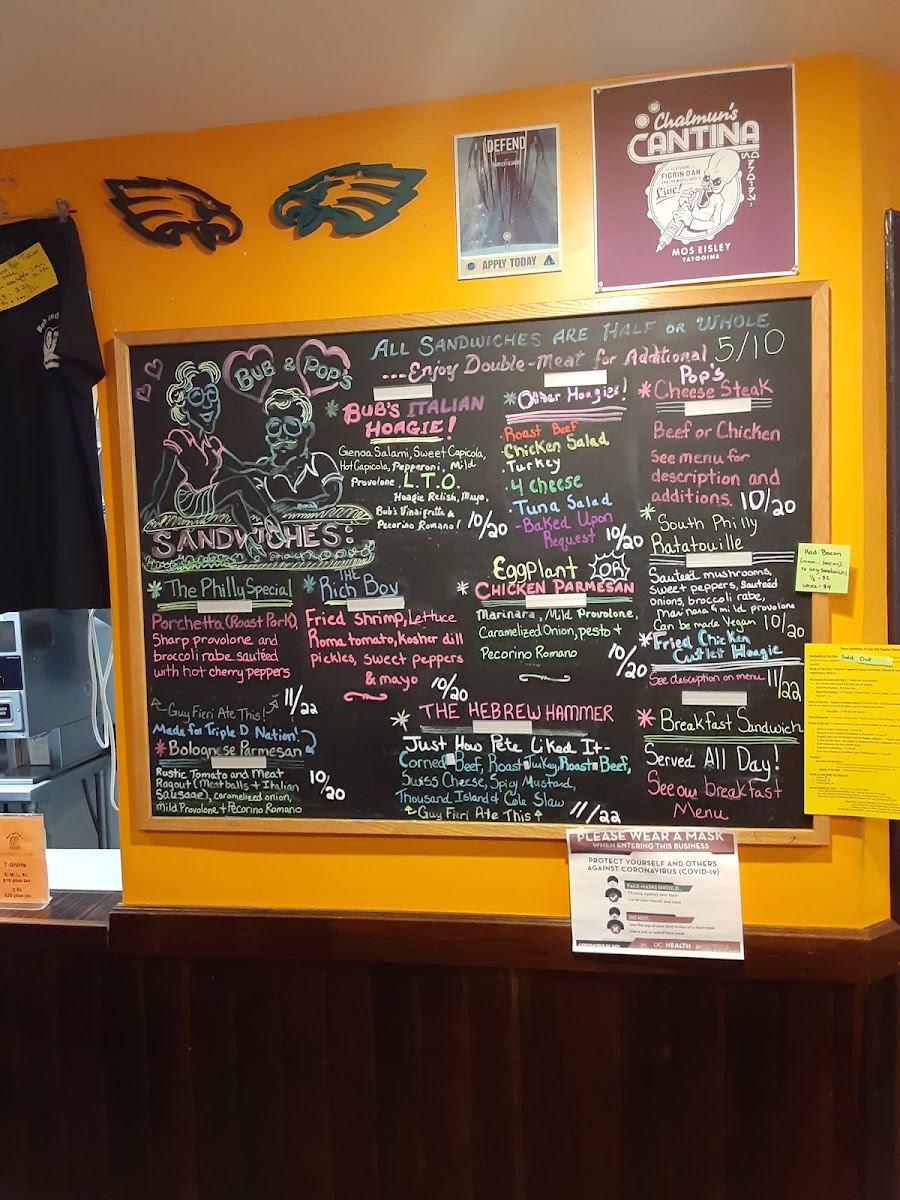 DEFEND
APPLY TODAY
Chalmun's
CANTINA
FEATURING
FIGRIN D'AN
AND THE MODAL NODES
Live!
MOS EISLEY
TATOOINE
ALL SANDWICHES ARE HALF OR WHOLE
...Enjoy Double-Meat for Additional 5/10
BUB & POP'S
SANDWICHES:
* BUB'S ITALIAN
HOAGIE!
Genoa Salami, Sweet Capicola,
Hot Capicola, Pepperoni, Mild
Provolone, L.T.O.
Hoagie Relish, Mayo,
Bub's Vinaigrette &
Pecorino Romano! 10/20
* Other Hoagies!
· Roast Beef
· Chicken Salad
· Turkey
· 4 Cheese
· Tuna Salad
- Baked Upon
Request 10/20
Pop's
* Cheese Steak
Beef or Chicken
See menu for
description and
additions. 10/20
* South Philly
Ratatouille
Sauteed mushrooms,
sweet peppers, sautéed
onions, broccoli rabe,
marinara & mild provolone
Can be made Vegan 10/20
* The Philly Special
Porchetta (Roast Pork),
Sharp provolone and
broccoli rabe sautéed
with hot cherry peppers
11/22
* THE
Rich Boy
Fried Shrimp, Lettuce
Roma tomato, kosher dill
pickles, sweet peppers
& mayo
10/20
* Eggplant OR
CHICKEN PARMESAN
Marinara, Mild Provolone,
Caramelized Onion, pesto +
Pecorino Romano
10/20
* Fried Chicken
Cutlet Hoagie
See description on menu 11/22
Guy Fieri Ate This!
Made for Triple D Nation!
* Bolognese Parmesan
Rustic Tomato and Meat
Ragout (Meatballs + Italian
Sausage), caramelized onion,
mild Provolone + Pecorino Romano
10/20
* THE HEBREW HAMMER
Just How Pete Liked It-
Corned Beef, Roast Turkey, Roast Beef,
Swiss Cheese, Spicy Mustard,
Thousand Island & Cole Slaw
Guy Fieri Ate This 11/22
* Breakfast Sandwich
Served All Day!
See our breakfast
Menu
Add Bacon
to any Sandwich
½ - $2
whole - $4
Sold Out
T-Shirts
S, M, L, XL
$18 plus tax
2XL
$20 plus tax
PLEASE WEAR A MASK
WHEN ENTERING THIS BUSINESS
PROTECT YOURSELF AND OTHERS
AGAINST CORONAVIRUS (COVID-19)
FACE MASKS SHOULD...
Fit snug against your face
Cover your mouth and nose
DO NOT...
Use a vent or valved face mask
CORONAVIRUS.DC.GOV
DC HEALTH